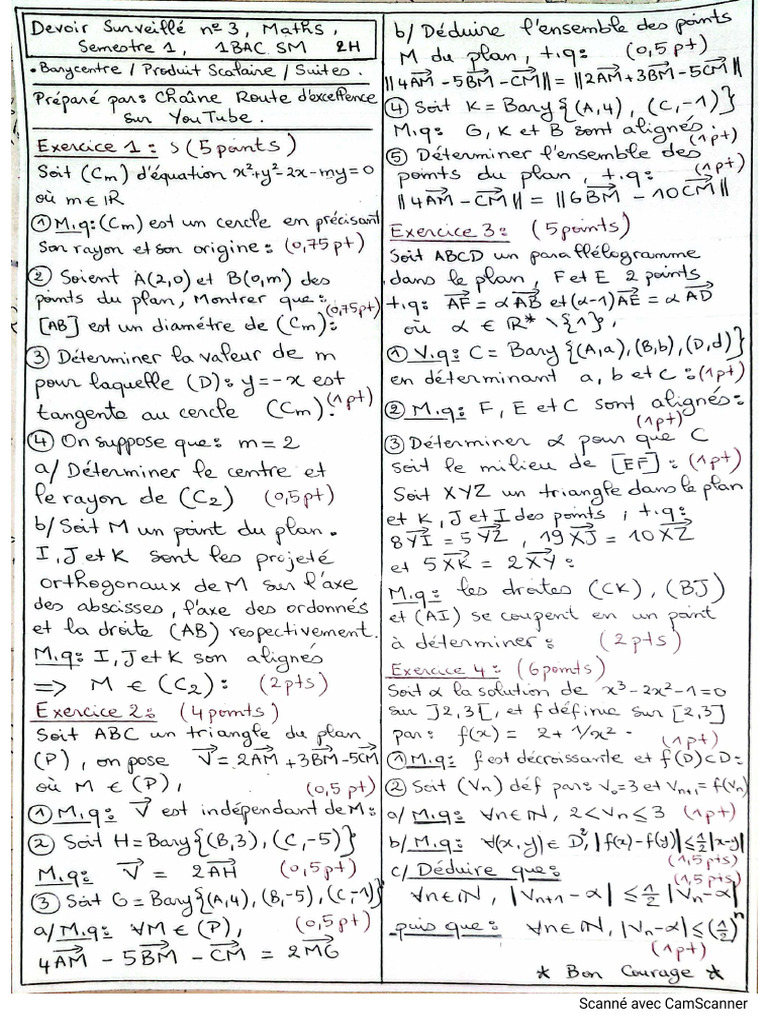 Devoir Surveillé n°3, Maths,
Semestre 1, 1BAC SM 2H
• Barycentre / Produit Scalaire / Suites.
Préparé par: Chaîne Route d'excellence
sur YouTube.
Exercice 1: (5 points)
Soit (Cm) d'équation x²+y²-2x-my=0
où m∈IR
① M.q: (Cm) est un cercle en précisant
son rayon et son origine: (0,75pt)
② Soient A(2,0) et B(0,m) des
points du plan, Montrer que:
[AB] est un diamétre de (Cm): (0,75pt)
③ Déterminer la valeur de m
pour laquelle (D): y=-x est
tangente au cercle (Cm): (1pt)
④ On suppose que: m=2
a/ Déterminer le centre et
le rayon de (C2) (0,5pt)
b/ Soit M un point du plan.
I, J et K sont les projeté
orthogonaux de M sur l'axe
des abscisses, l'axe des ordonnés
et la droite (AB) respectivement.
M.q: I, J et K son alignés
=> M ∈ (C2): (2pts)
Exercice 2: (4 points)
Soit ABC un triangle du plan
(P), on pose V⃗=2AM⃗+3BM⃗-5CM⃗
où M ∈ (P), (0,5pt)
① M.q: V⃗ est indépendant de M:
② Soit H=Bary{(B,3),(C,-5)}
M.q: V⃗ = 2AH⃗ (0,5pt)
③ Soit G=Bary{(A,4),(B,-5),(C,-1)}
a/ M.q: ∀M∈(P), (0,5pt)
4AM⃗ - 5BM⃗ - CM⃗ = 2MG⃗
b/ Déduire l'ensemble des points
M du plan, t.q: (0,5pt)
||4AM⃗-5BM⃗-CM⃗||=||2AM⃗+3BM⃗-5CM⃗||
④ Soit K=Bary{(A,4), (C,-1)}
M.q: G, K et B sont alignés: (1pt)
⑤ Déterminer l'ensemble des
points du plan, t.q: (1pt)
||4AM⃗ - CM⃗|| = ||6BM⃗ - 10CM⃗||
Exercice 3: (5points)
Soit ABCD un parallélogramme
dans le plan, F et E 2 points
t.q: AF⃗ = αAB⃗ et (α-1)AE⃗ = αAD⃗
où α ∈ IR* \{1},
① V.q: C=Bary{(A,a),(B,b),(D,d)}
en déterminant a, b et c: (1pt)
② M.q: F, E et C sont alignés:
(1pt)
③ Déterminer α pour que C
soit le milieu de [EF]: (1pt)
Soit XYZ un triangle dans le plan
et K, J et I des points, t.q:
8YI⃗ = 5YZ⃗, 19XJ⃗ = 10XZ⃗
et 5XK⃗ = 2XY⃗:
M.q: les droites (CK), (BJ)
et (AI) se coupent en un point
à déterminer: (2pts)
Exercice 4: (6points)
Soit α la solution de x³-2x²-1=0
sur ]2,3[, et f définie sur [2,3]
par: f(x) = 2+1/x². (1pt)
① M.q: f est décroissante et f(D)⊂D:
② Soit (Vn) déf par: V₀=3 et Vn+1=f(Vn)
a/ M.q: ∀n∈IN, 2<Vn≤3 (1pt)
b/ M.q: ∀(x,y)∈D², |f(x)-f(y)|≤1/2|x-y|
(1,5pts)
c/ Déduire que: (1,5pts)
∀n∈IN, |Vn+1-α| ≤ 1/2 |Vn-α|
puis que: ∀n∈IN, |Vn-α|≤(1/2)ⁿ
(1pt)
* Bon Courage *
Scanné avec CamScanner